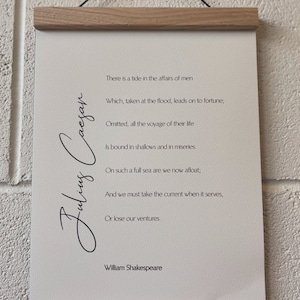 Julius Caesar
There is a tide in the affairs of men
Which, taken at the flood, leads on to fortune;
Omitted, all the voyage of their life
Is bound in shallows and in miseries.
On such a full sea are we now afloat;
And we must take the current when it serves,
Or lose our ventures
William Shakespeare